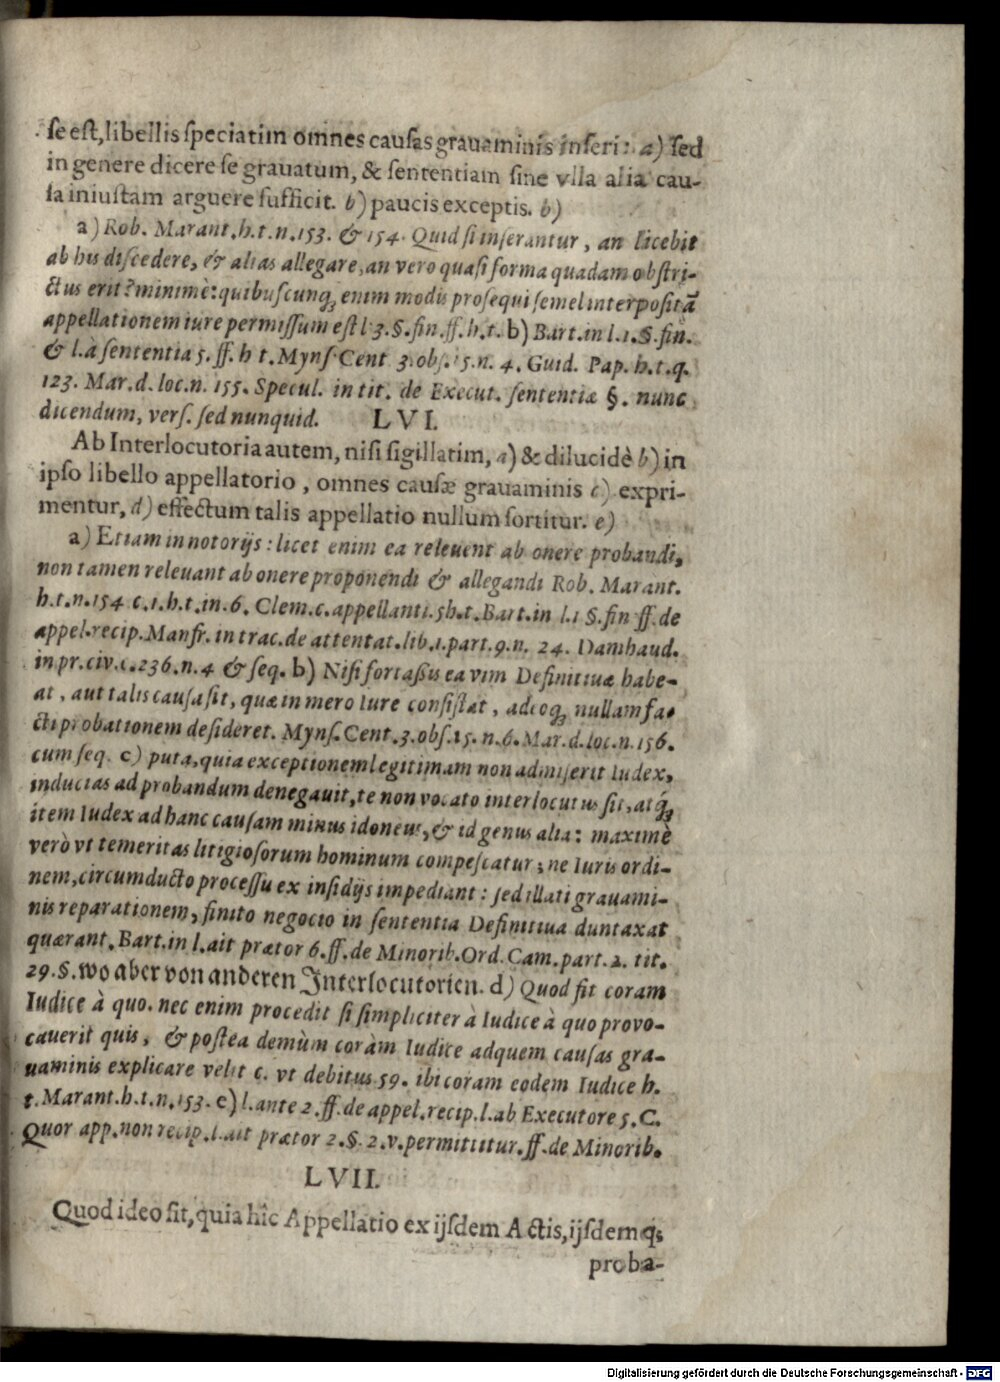 se est, libellis speciatim omnes causas grauaminis inseri: a) sed
in genere dicere se grauatum, & sententiam sine vlla alia cau-
sa iniustam arguere sufficit. b) paucis exceptis. b)
a) Rob. Marant. h. t. n. 153. & 154. Quid si inserantur, an licebit
ab his discedere, & alias allegare, an vero quasi forma quadam obstri-
ctus erit? minimè: quibuscunq; enim modis prosequi semel interpositã
appellationem iure permissum est l 3. §. fin. ff. h. t. b) Bart. in l. 1. §. fin.
& l. à sententia 5. ff. h t. Myns. Cent 3. obs. 15. n. 4. Guid. Pap. h. t. q.
123. Mar. d. loc. n. 155. Specul. in tit. de Execut. sententiæ §. nunc
dicendum, vers. sed nunquid. LVI.
Ab Interlocutoria autem, nisi sigillatim, a) & dilucidè b) in
ipso libello appellatorio, omnes causæ grauaminis c) expri-
mentur, d) effectum talis appellatio nullum sortitur. e)
a) Etiam in notorijs: licet enim ea releuent ab onere probandi,
non tamen releuant ab onere proponendi & allegandi Rob. Marant.
h. t. n. 154 c. 1. h. t. in. 6. Clem. c. appellanti. 5 h. t. Bart. in l. 1 §. fin ff. de
appel. recip. Manfr. in trac. de attentat. lib. 1. part. 9. n. 24. Damhaud.
in pr. civ. c. 236. n. 4 & seq. b) Nisi fortaßis ea vim Definitiuæ habe-
at, aut talis causa sit, quæ in mero iure consistat, adeoq; nullam fa-
cti probationem desideret. Myns. Cent. 3. obs. 15. n. 6. Mar. d. loc. n. 156.
cum seq. c) puta, quia exceptionem legitimam non admiserit Iudex,
inducias ad probandum denegauit, te non vocato interlocutus sit, atq;
item Iudex ad hanc causam minus idoneus, & id genus alia: maximè
verò vt temeritas litigiosorum hominum compescatur; ne Iuris ordi-
nem, circumducto processu ex insidijs impediant: sed illati grauami-
nis reparationem, finito negocio in sententia Definitiua duntaxat
quærant. Bart. in l. ait prætor 6. ff. de Minorib. Ord. Cam. part. 2. tit.
29. §. wo aber von anderen Interlocutorien. d) Quod fit coram
Iudice à quo. nec enim procedit si simpliciter à Iudice à quo prouo-
cauerit quis, & postea demùm coràm Iudice adquem causas gra-
uaminis explicare velit c. vt debitus 59. ibi coram eodem Iudice h.
t. Marant. h. t. n. 153. e) l. ante 2. ff. de appel. recip. l. ab Executore 5. C.
Quor app. non recip. l. ait prætor 2. §. 2. v. permittitur. ff. de Minorib.
LVII.
Quod ideo fit, quia hîc Appellatio ex ijsdem Actis, ijsdemq;
proba-
Digitalisierung gefördert durch die Deutsche Forschungsgemeinschaft - DFG